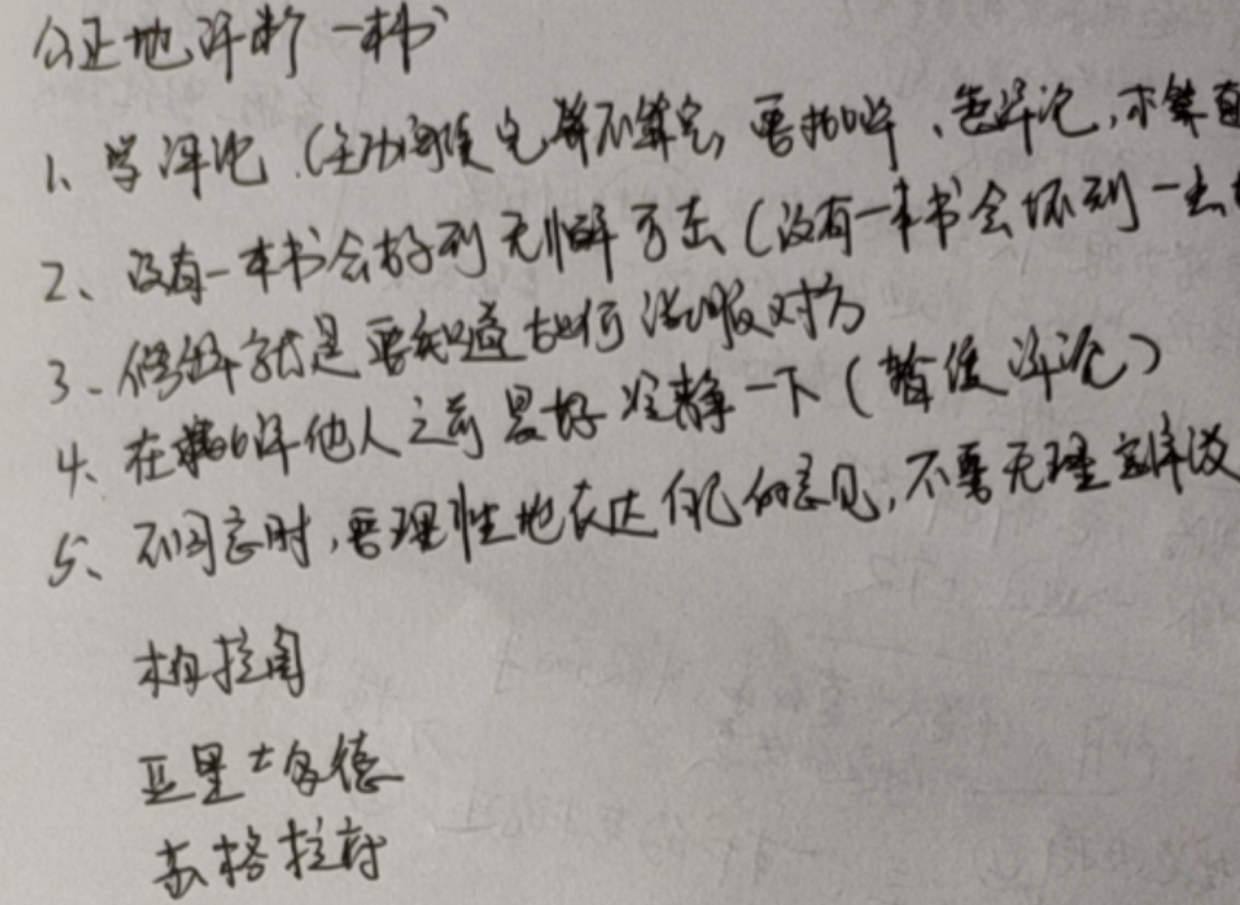 公正地评断一本书
1、学评论(主动阅读完算不算完,要批评、色评论,才算
2、没有一本书会好到无懈可击(没有一本书会坏到一无
3、修辞就是要知道如何说服对方
4、在批评他人之前最好冷静一下(暂缓评论)
5、不同意时,要理性地表达自己的意见,不要无理
柏拉图
亚里士多德
苏格拉底